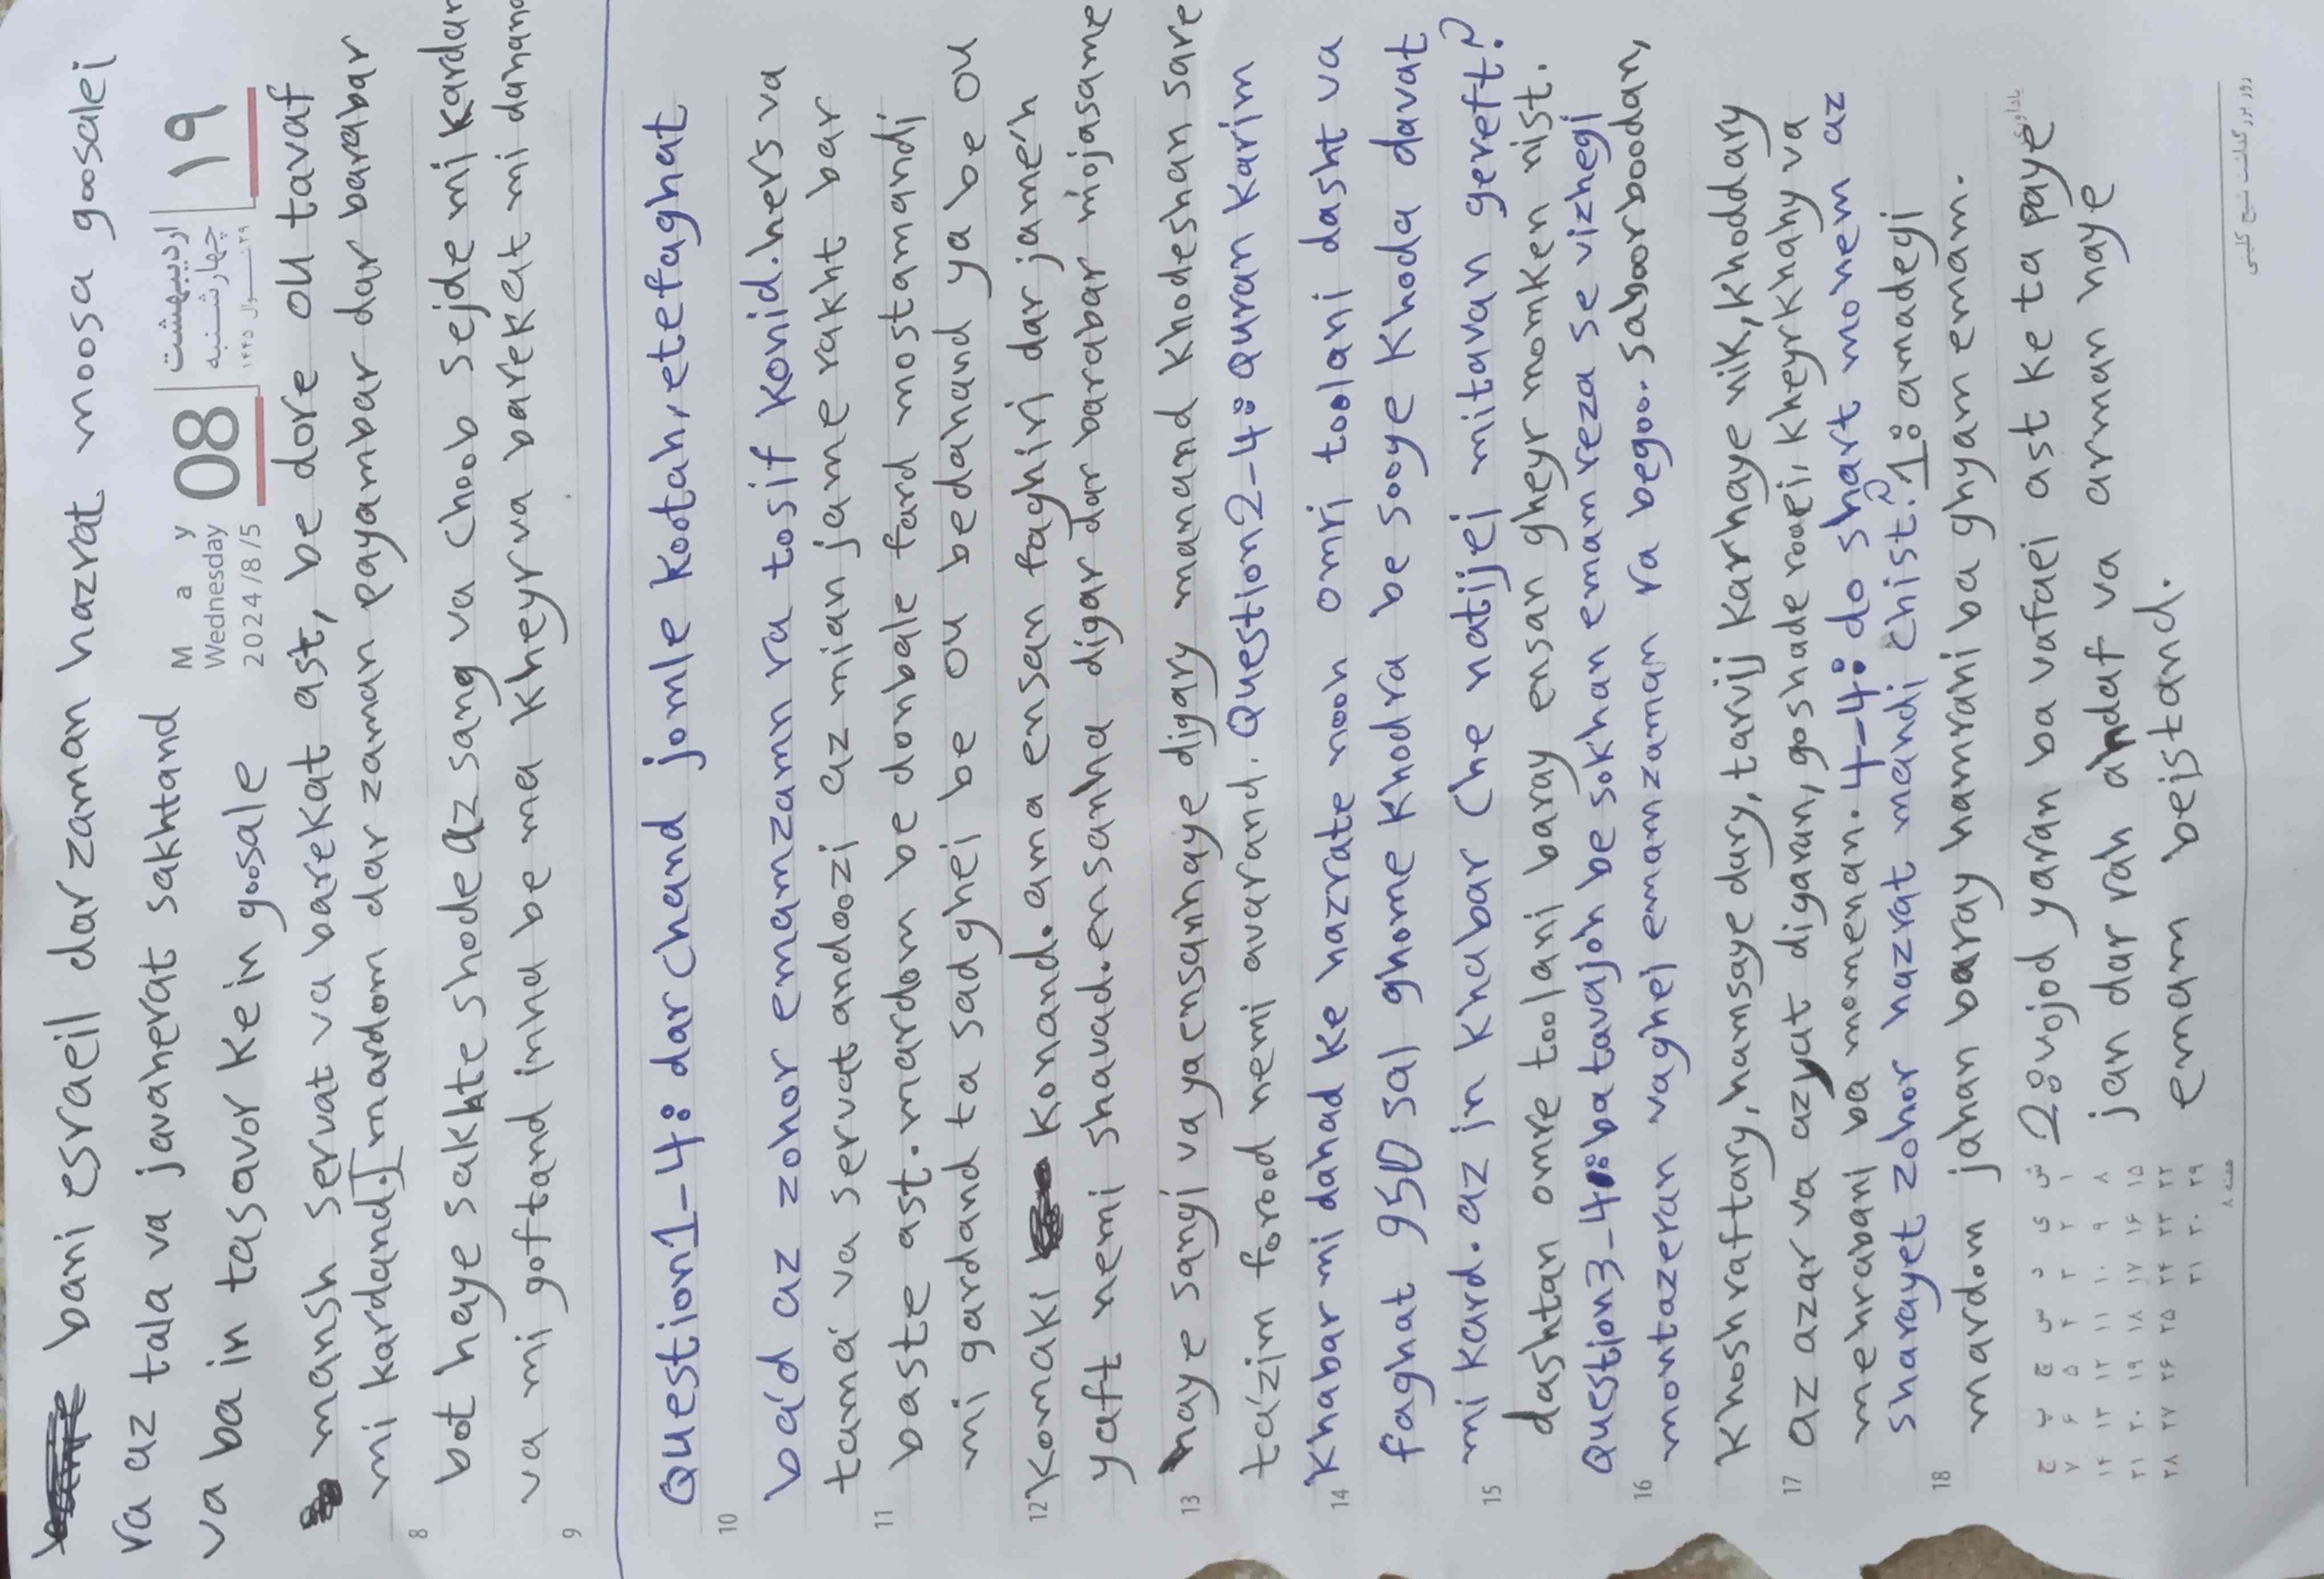 bani esraeil dar zaman hazrat moosa goosalei
ra az tala va javaherat sakhtand
va ba in tasavor ke in goosale
M a y
Wednesday
2024/8/5
08
اردیبهشت
چهارشنبه
۲۹ شـــوال ۱۴۴۵
۱۹
mansh servat va barekat ast, be dore ou tavaf
mi kardand.] mardom dar zaman payambar dar barabar
bot haye sakhte shode az sang va choob sejde mi kardan
va mi goftand inha be ma kheyr va barekat mi dahand
Question1_4: dar chand jomle kootah, etefaghat
ba'd az zohor emamzamn ra tosif konid. hers va
tama' va servat andoozi az mian jame rakht bar
baste ast. mardom be donbale fard mostamandi
mi gardand ta sadghei be ou bedahand ya be ou
komaki konand. ama ensan faghiri dar jame'h
yaft nemi shavad. ensanha digar dar barabar mojasame
haye sangi va ya ensanhaye digary manand khodeshan sare
ta'zim forod nemi avarand. Question2-4: quran karim
khabar mi dahad ke hazrate nooh omri toolani dasht va
faghat 950 sal ghome khodra be sooye khoda davat
mi kard. az in khabar che natijei mitavan gereft?
dashtan omre toolani baray ensan gheyr momken nist.
Question3_4: ba tavajoh be sokhan emam reza se vizhegi
montazeran vaghei emamzaman ra begoo. saboorboodan,
khoshraftary, hamsaye dary, tarvij karhaye nik, khoddary
az azar va azyat digaran, goshade rooei, kheyrkhahy va
mehrabani ba momenan. 4-4: do shart mohem az
sharayet zohor hazrat mahdi chist? 1: amadegi
mardom jahan baray hamrahi ba ghyam emam.
2: vojod yaran ba vafaei ast ke ta paye
jan dar rah ahdaf va arman haye
emam beistand.
8
9
10
11
12
13
14
15
16
17
18
ش ی د س چ پ ج
۱ ۲ ۳ ۴ ۵ ۶ ۷
۸ ۹ ۱۰ ۱۱ ۱۲ ۱۳ ۱۴
۱۵ ۱۶ ۱۷ ۱۸ ۱۹ ۲۰ ۲۱
۲۲ ۲۳ ۲۴ ۲۵ ۲۶ ۲۷ ۲۸
۲۹ ۳۰ ۳۱
هفته ۸
یادآوری
روز بزرگداشت شیخ کلینی